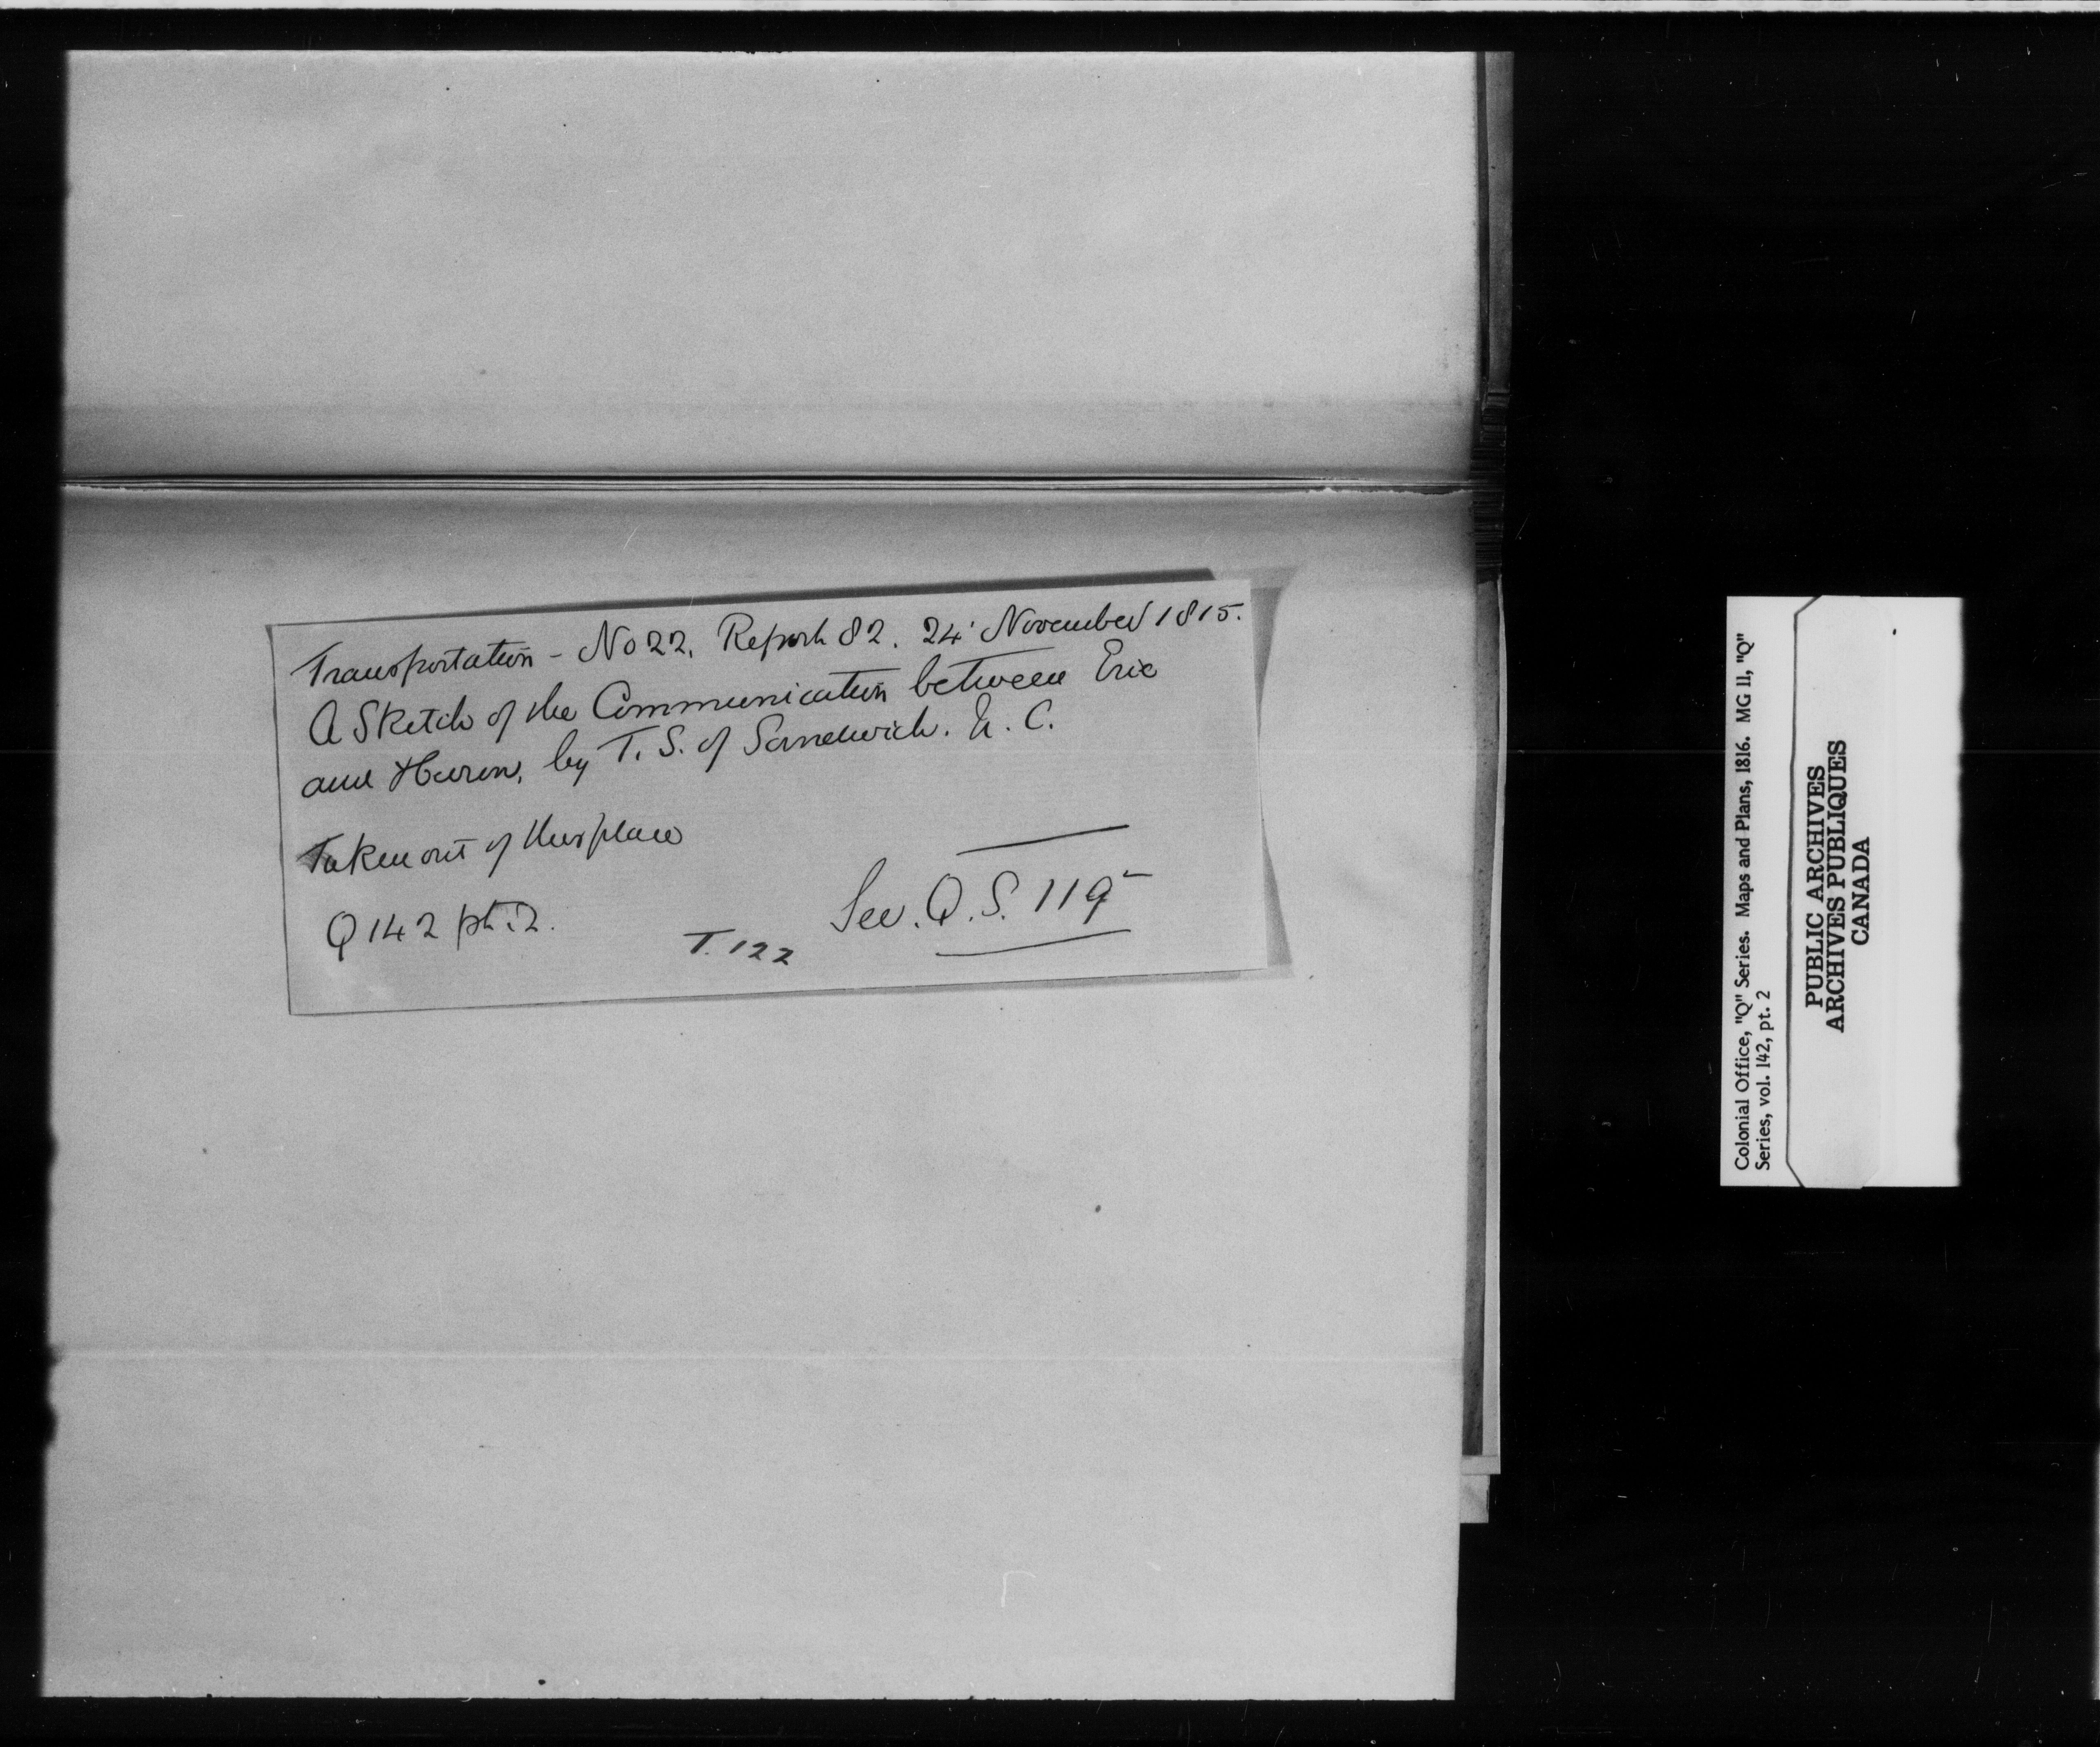 Transportation - No 22. Report 82. 24 November 1815.
A Sketch of the Communication between Erie
and Huron, by T. S. of Sandwich. U. C.
Taken out of this place
Q 142 pt. 2.
T. 122
See. Q. S. 119
Colonial Office, "Q" Series. Maps and Plans, 1816. MG 11, "Q"
Series, vol. 142, pt. 2
PUBLIC ARCHIVES
ARCHIVES PUBLIQUES
CANADA